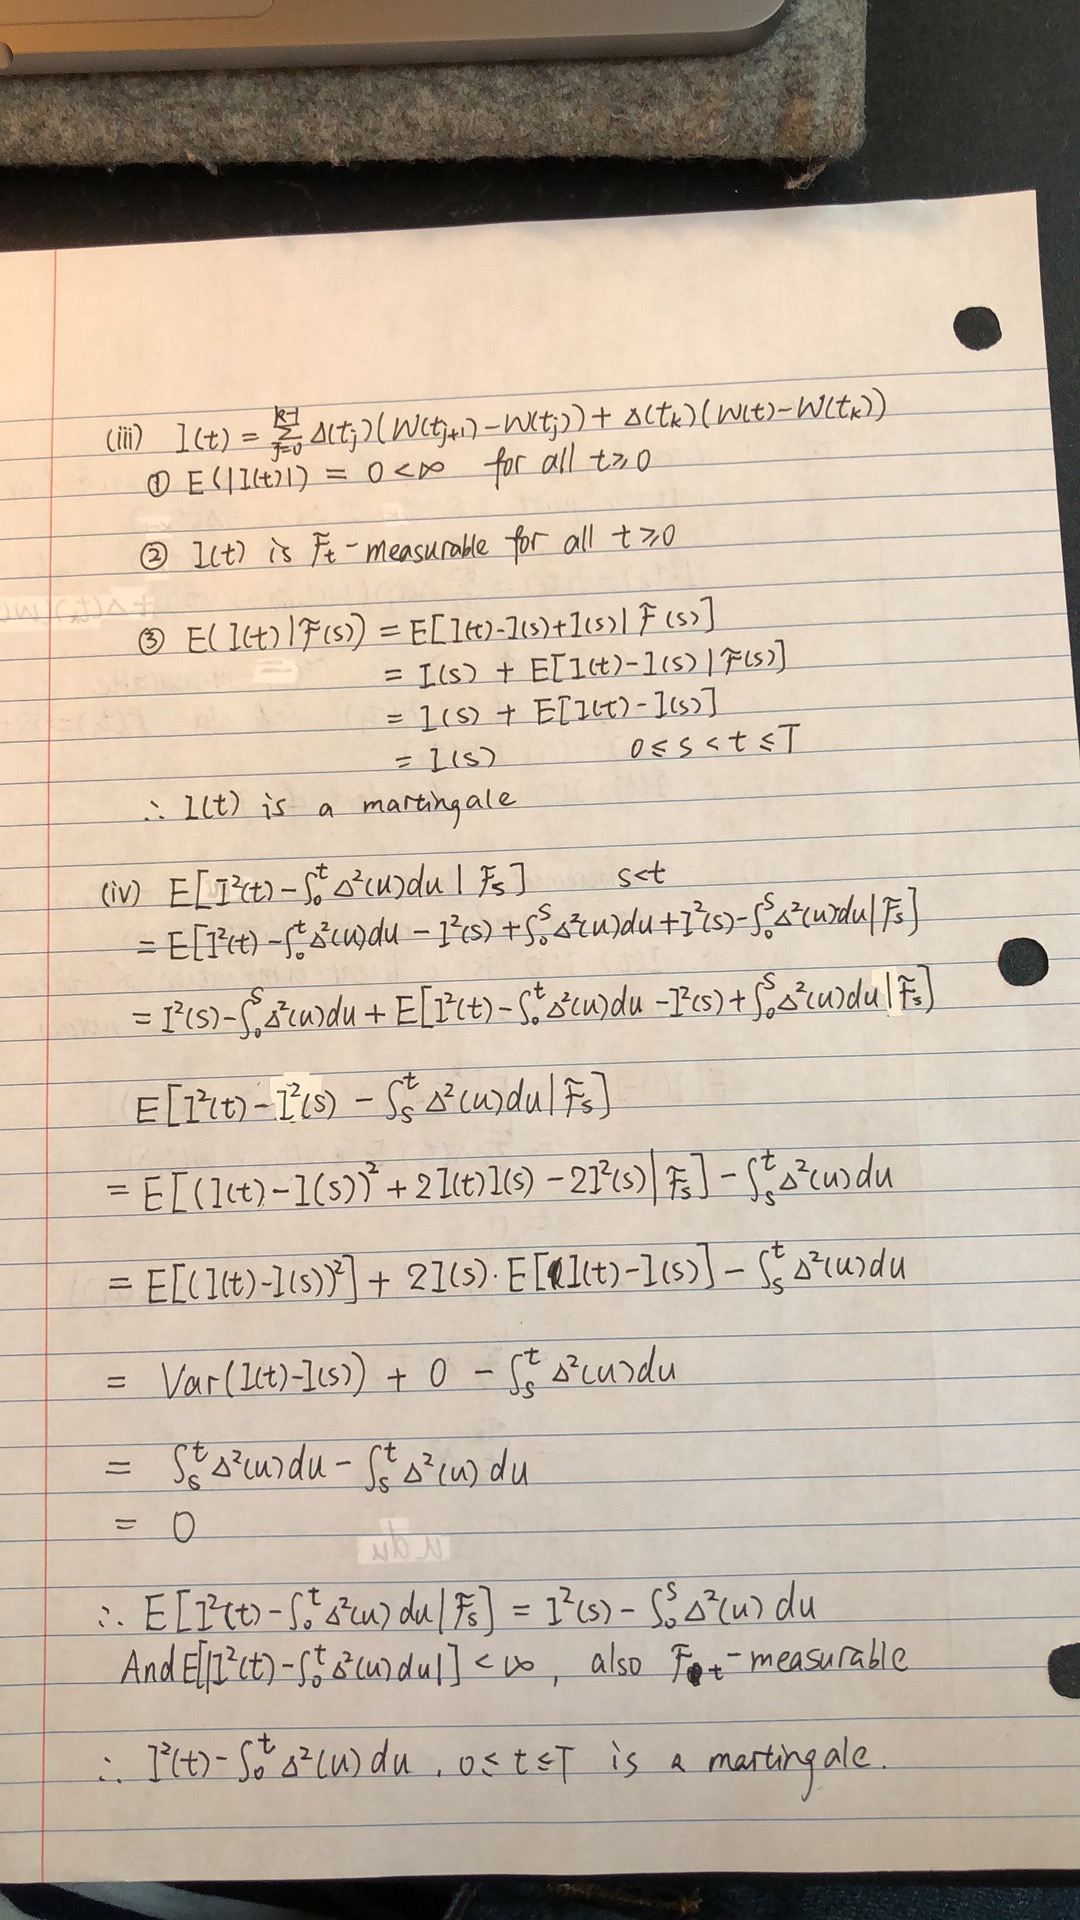 (iii) I(t) = Σ_{j=0}^{k-1} Δ(tⱼ)(W(tⱼ₊₁)-W(tⱼ)) + Δ(tₖ)(W(t)-W(tₖ))
① E(|I(t)|) = 0 < ∞ for all t ≥ 0
② I(t) is Fₜ-measurable for all t ≥ 0
③ E(I(t)|F(s)) = E[I(t)-I(s)+I(s)|F(s)]
= I(s) + E[I(t)-I(s)|F(s)]
= I(s) + E[I(t)-I(s)]
= I(s) 0 ≤ s < t ≤ T
∴ I(t) is a martingale
(iv) E[I²(t) - ∫₀ᵗ Δ²(u)du | Fₛ] s<t
= E[I²(t) - ∫₀ᵗ Δ²(u)du - I²(s) + ∫₀ˢ Δ²(u)du + I²(s) - ∫₀ˢ Δ²(u)du | Fₛ]
= I²(s) - ∫₀ˢ Δ²(u)du + E[I²(t) - ∫₀ᵗ Δ²(u)du - I²(s) + ∫₀ˢ Δ²(u)du | Fₛ]
E[I²(t) - I²(s) - ∫ₛᵗ Δ²(u)du | Fₛ]
= E[(I(t)-I(s))² + 2I(t)I(s) - 2I²(s) | Fₛ] - ∫ₛᵗ Δ²(u)du
= E[(I(t)-I(s))²] + 2I(s)·E[I(t)-I(s)] - ∫ₛᵗ Δ²(u)du
= Var(I(t)-I(s)) + 0 - ∫ₛᵗ Δ²(u)du
= ∫ₛᵗ Δ²(u)du - ∫ₛᵗ Δ²(u)du
= 0
∴ E[I²(t) - ∫₀ᵗ Δ²(u)du | Fₛ] = I²(s) - ∫₀ˢ Δ²(u)du
And E[|I²(t) - ∫₀ᵗ Δ²(u)du|] < ∞, also Fₜ-measurable
∴ I²(t) - ∫₀ᵗ Δ²(u)du, 0 ≤ t ≤ T is a martingale.